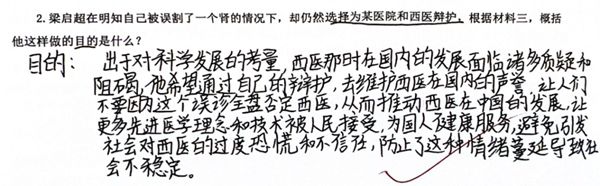 2. 梁启超在明知自己被误割了一个肾的情况下，却仍然选择为某医院和西医辩护。根据材料三，概括
他这样做的目的是什么？
目的：出于对科学发展的考量，西医那时在国内的发展面临诸多质疑和
阻碍，他希望通过自己的辩护，去维护西医在国内的声誉，让人们
不要因为这个误诊全盘否定西医，从而推动西医在中国的发展，让
更多先进医学理念和技术被人民接受，为国人健康服务，避免引发
社会对西医的过度恐慌和不信任，防止了这种情绪蔓延导致社
会不稳定。